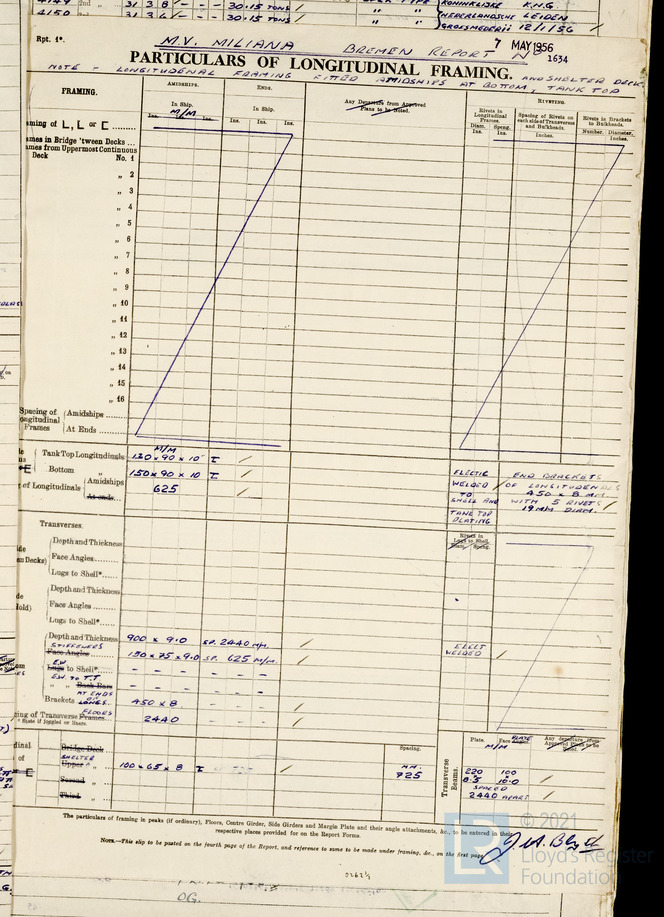 4149 2nd " 31 3 8 - - 30.15 TONS / KONINKLIJKE K.N.G.
4150 " 31 3 4 - - 30.15 TONS / " " NEDERLANDSCHE LEIDEN
GROSMEDERIJ 12/1/56 /
Rpt. 1*.
M.V. MILIANA BREMEN REPORT No 1634
7 MAY 1956
PARTICULARS OF LONGITUDINAL FRAMING.
NOTE - LONGITUDENAL FRAMING FITTED AMIDSHIPS AT BOTTOM, TANK TOP AND SHELTER DECK
FRAMING. AMIDSHIPS. ENDS. RIVETING.
In Ship. In Ship. Any Departure from Approved Plans to be Noted. Rivets in Longitudinal Frames. Spacing of Rivets on each side of Transverses and Bulkheads. Rivets in Brackets to Bulkheads.
Ins. M/M Ins. Ins. Ins. Ins. Diam. Ins. Spcng. Ins. Inches. Number. Diameter, Inches.
aming of L, L, or E
ames in Bridge 'tween Decks ...
ames from Uppermost Continuous
Deck No. 1
" 2
" 3
" 4
" 5
" 6
" 7
" 8
" 9
" 10
" 11
" 12
" 13
" 14
" 15
" 16
Spacing of Longitudinal Frames Amidships
At Ends
M/M
Tank Top Longitudinals 130 x 90 x 10 /
Bottom " 150 x 90 x 10 /
of Longitudinals Amidships 625 /
At ends
ELECTIC WELDED TO SHELL AND TANK TOP PLATING
END BRACKETS OF LONGITUDENALS 450 x 8 MM. WITH 5 RIVETS 19 M/M DIAM.
Transverses. Rivets in Lugs to Shell.
Diam. Spcng.
Depth and Thickness
Face Angles
Lugs to Shell*
Depth and Thickness
Face Angles
Lugs to Shell*
Depth and Thickness 900 x 9.0 SP. 2440 M/M. /
STIFFENERS
Face Angles 150 x 75 x 9.0 SP. 625 M/M. / ELECT WELDED /
E.W.
Lugs to Shell* - - - -
E.W. TO T.T
" " Back Bars - - - -
AT ENDS OF LONGS.
Brackets 450 x 8 - - /
FLOORS
ing of Transverse Frames 2440 - - /
* State if joggled or liners.
Spacing. Plate. Face Angles. PLATE Any departure from Approved Plan to be Noted.
Bridge Deck M/M
SHELTER
Upper " 100 x 65 x 8 / MM. 725
Second "
Third "
Transverse Beams. 220 100
8.5 10.0 /
SPACED
2440 APART /
The particulars of framing in peaks (if ordinary), Floors, Centre Girder, Side Girders and Margin Plate and their angle attachments, &c., to be entered in their
respective places provided for on the Report Forms.
NOTE.—This slip to be posted on the fourth page of the Report, and reference to same to be made under framing, &c., on the first page.
0262½
OG.
© 2021
Lloyd's Register
Foundation
LR